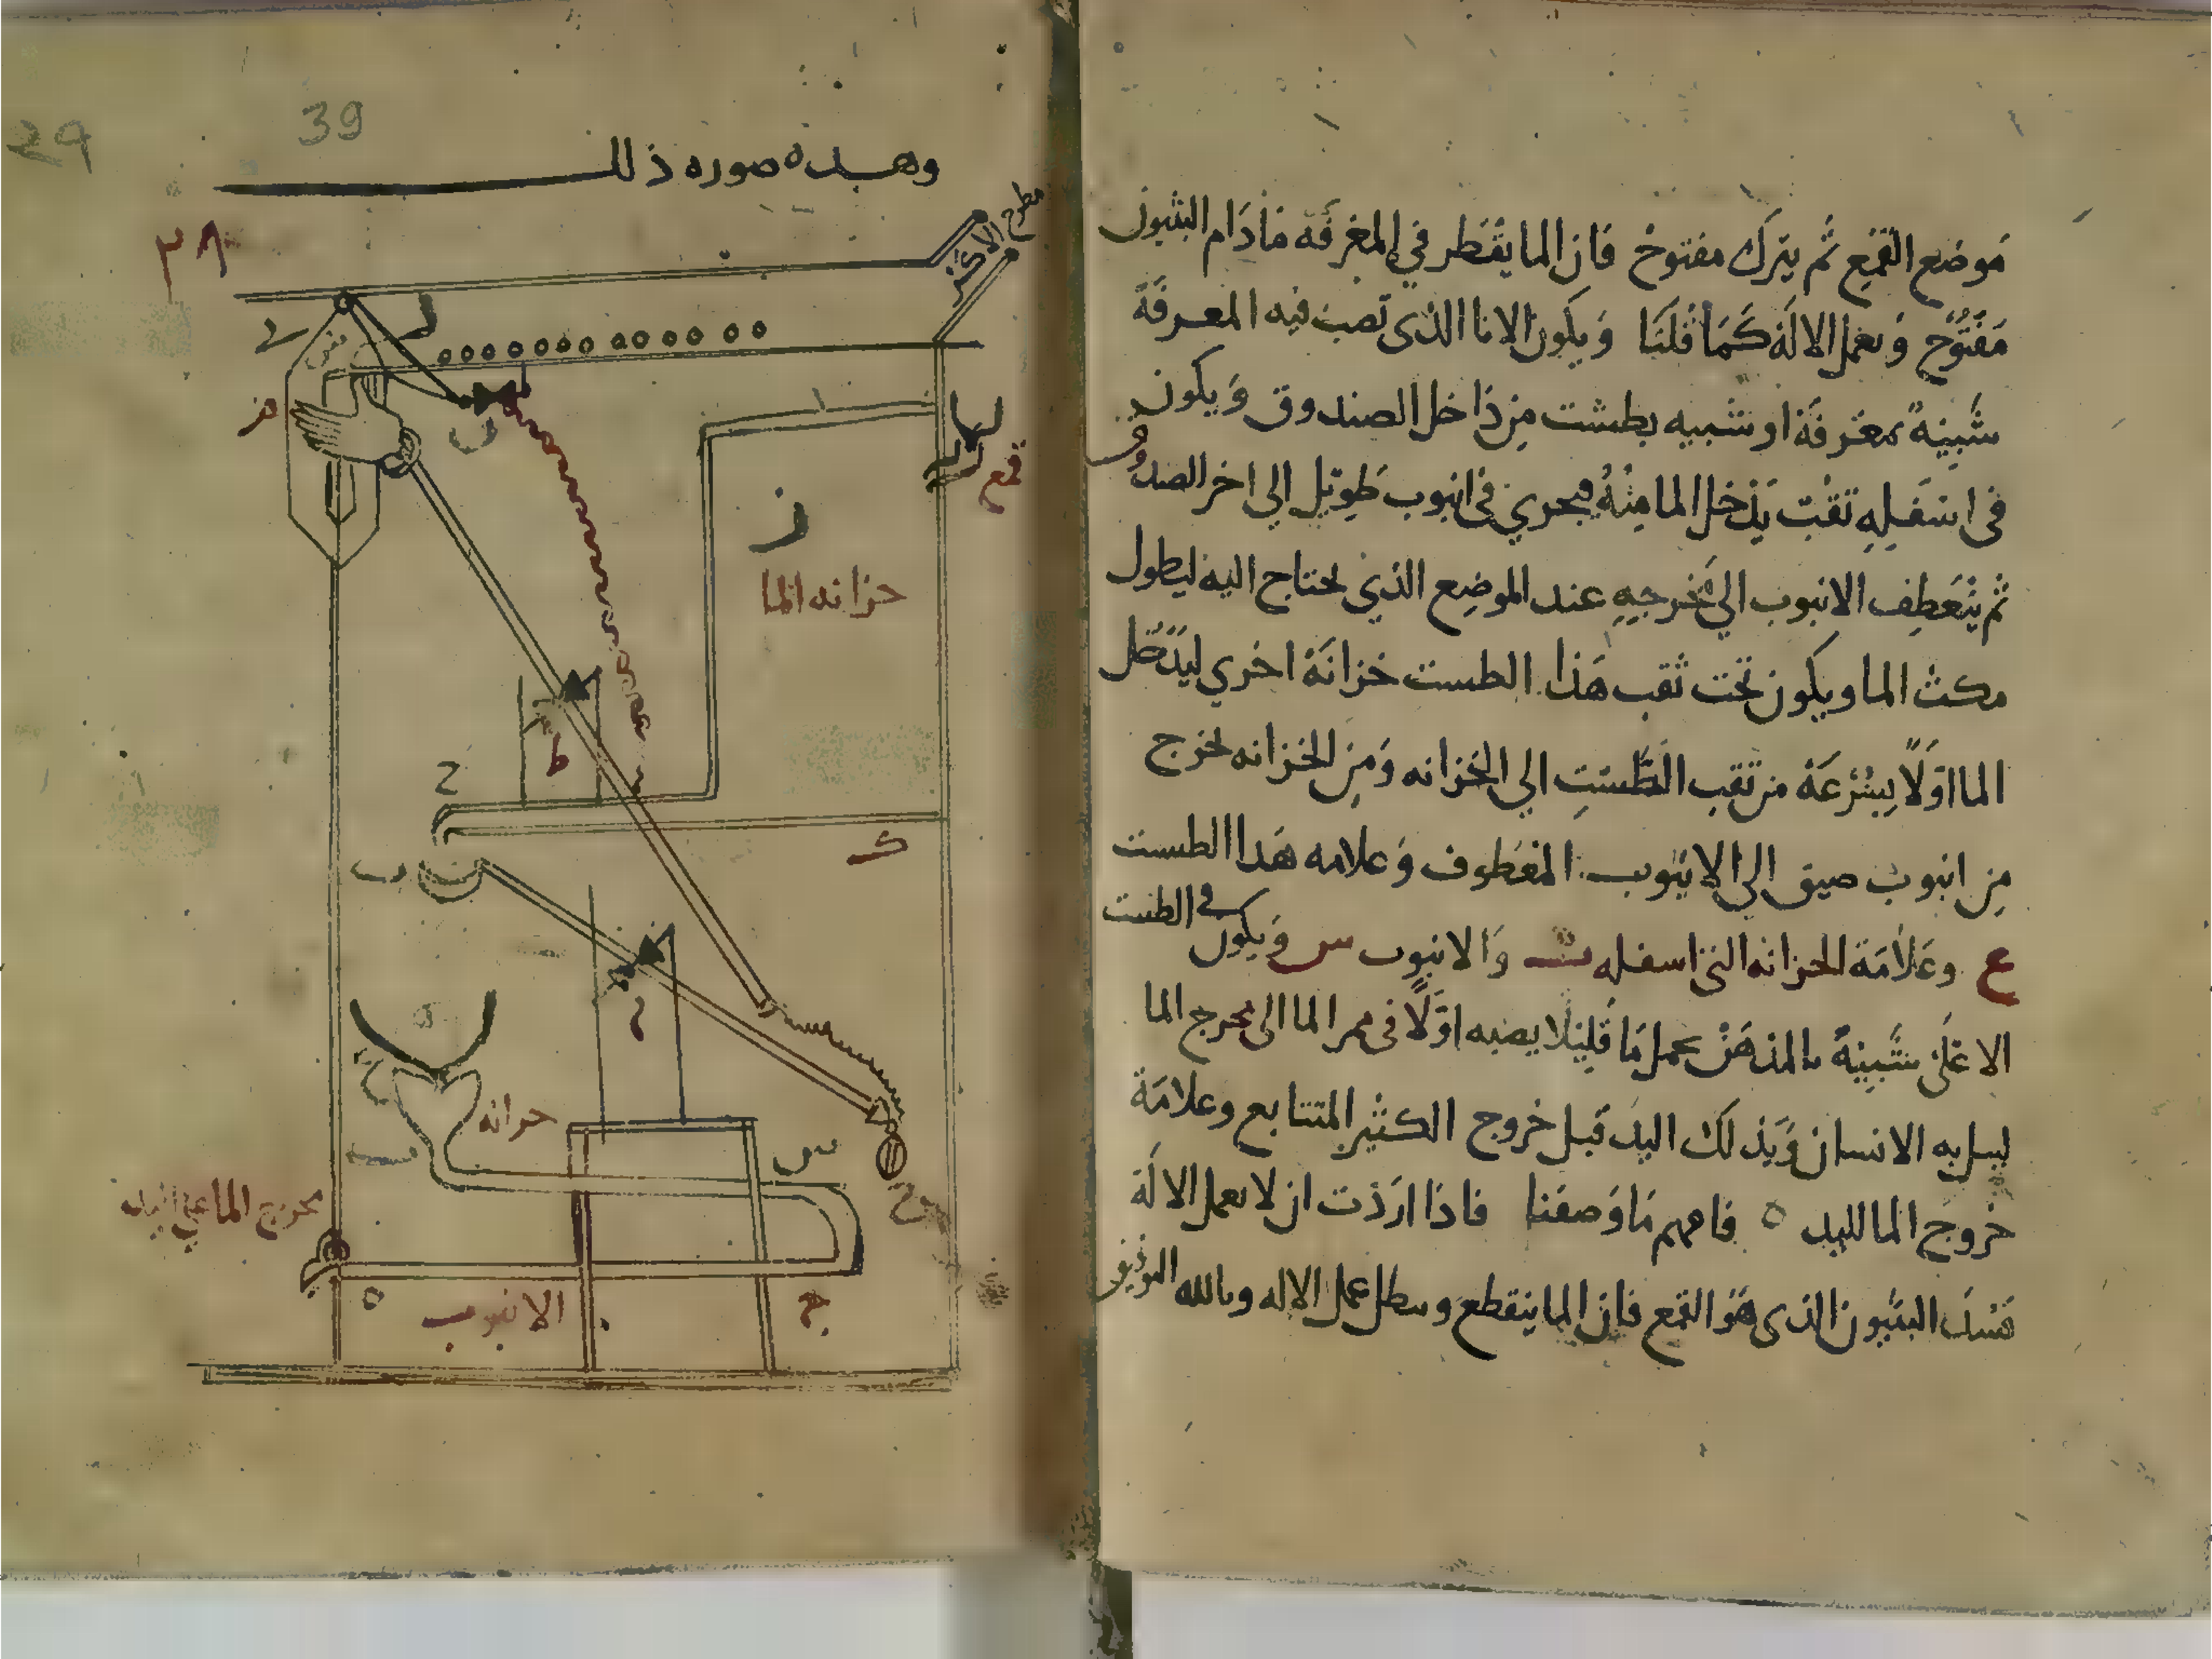 موضع القمع ثم يترك مفتوح فان الما يقطر في المغرفة ما دام البثيون
مفتوح وبعمل الالة كما قلنا ويكون الانا الذى تصب فيه المعرفة
شبيهة بمغرفة او شبيه بطشت من داخل الصندوق ويكون
فى اسفله ثقب يدخل الما منه فيجري فى انبوب طويل الى اخر الصندوق
ثم ينعطف الانبوب الي مخرجه عند الموضع الذي يحتاج اليه ليطول
مكث الما ويكون تحت ثقب هذا الطست خزانة اخري ليدخل
الما اولا بسرعة من ثقب الطست الي الخزانه ومن الخزانه يخرج
من انبوب ضيق الى الانبوب المعطوف وعلامه هدا الطست
ع وعلامة الخزانه التى اسفله ب والانبوب س ويكون فى الطست
الاعلى شبيه بالمدهن يعمل ما قلنا لا يصبه اولا فى ممر الما الى مخرج الما
الانسان ويذلك اليد قبل خروج الكثير المتتابع وعلامة
خروج الما لليد ٥ فافهم ما وصفنا فاذا اردت ان لا تعمل الالة
البثيون الذى هو القمع فان الما ينقطع وببطل عمل الاله وبالله التوفيق
39
29
وهــده صوره ذلك
٣٨
مطرح
ل
قمع
ا
ز
خزانه الما
ط
ح
ك
خزانه
س
مخرج الما على اليد
٥
الانبوب
ج